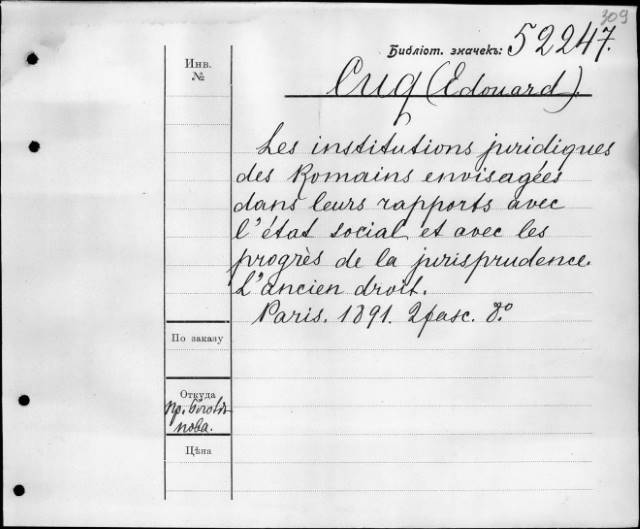 309
Библіот. значекъ: 52247.
Инв.
№
Cuq (Edouard).
Les institutions juridiques
des Romains envisagées
dans leurs rapports avec
l'état social et avec les
progrès de la jurisprudence.
L'ancien droit.
Paris. 1891. 2 fasc. 8.°
По заказу
Откуда
пр.
нова.
Цѣна